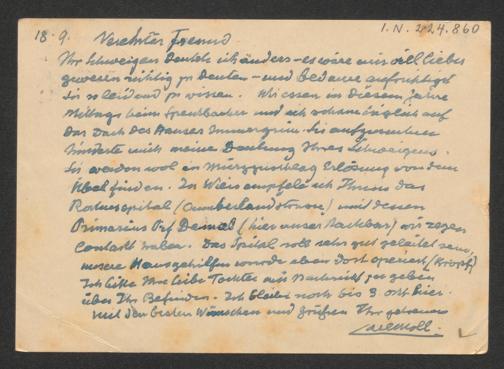 18. 9.
I. N. 224.860
Verehrter Freund.
Ihr Schweigen deutete ich anders – es wäre mir viel lieber
gewesen richtig zu deuten – und bedaure aufrichtigst
Sie so leidend zu wissen. Wir essen in diesem Jahre
Mittags beim Sprechbacher und ich schaue täglich auf
das Dach des Hauses Immergrün. Sie aufzusuchen
hinderte mich meine Deutung Ihres Schweigens.
Sie werden wol in Mürzzuschlag Erlösung von dem
Übel finden. In Wien empfehle ich Ihnen das
spital (Cumberlandstrasse) mit dessen
Primarius Prof Demel (hier unser Nachbar) wir regen
Contact haben. Das Spital soll sehr gut geleitet sein,
unsere Hausgehilfin wurde eben dort operiert (Kropf)
Ich bitte Ihre liebe Tochter mir Nachricht zu geben
über Ihr Befinden. Ich bleibe noch bis 3 Okt hier.
Mit den besten Wünschen und Grüßen Ihr getreuer
Moll.